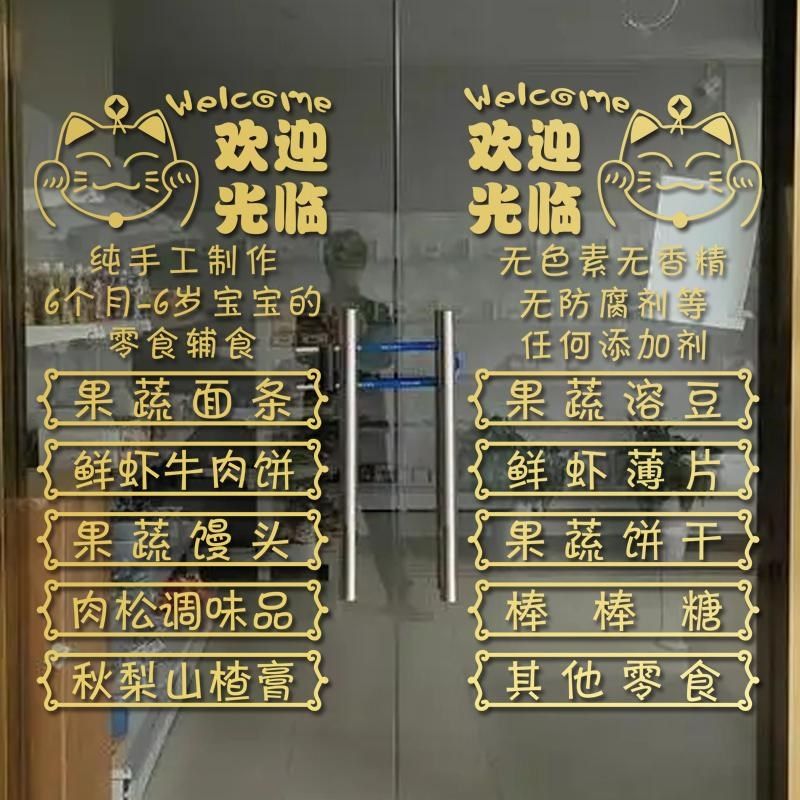 Welcome
欢迎
光临
纯手工制作
6个月-6岁宝宝的
零食辅食
果蔬面条
鲜虾牛肉饼
果蔬馒头
肉松调味品
秋梨山楂膏
Welcome
欢迎
光临
无色素无香精
无防腐剂等
任何添加剂
果蔬溶豆
鲜虾薄片
果蔬饼干
棒棒糖
其他零食